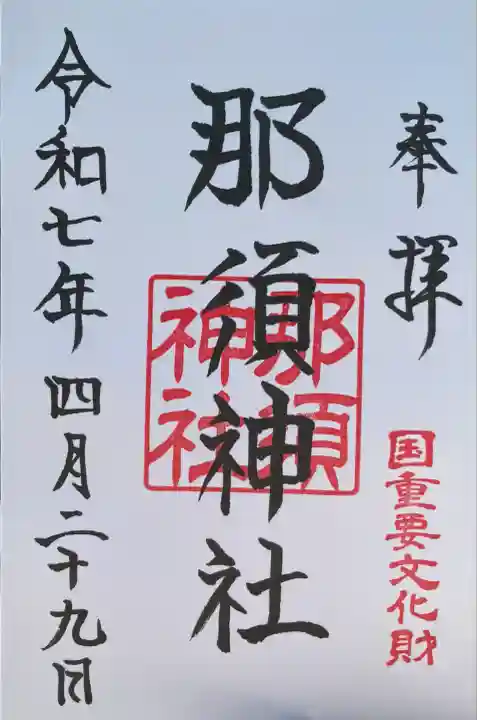 奉拝
国重要文化財
那須神社
那須
神社
令和七年四月二十九日